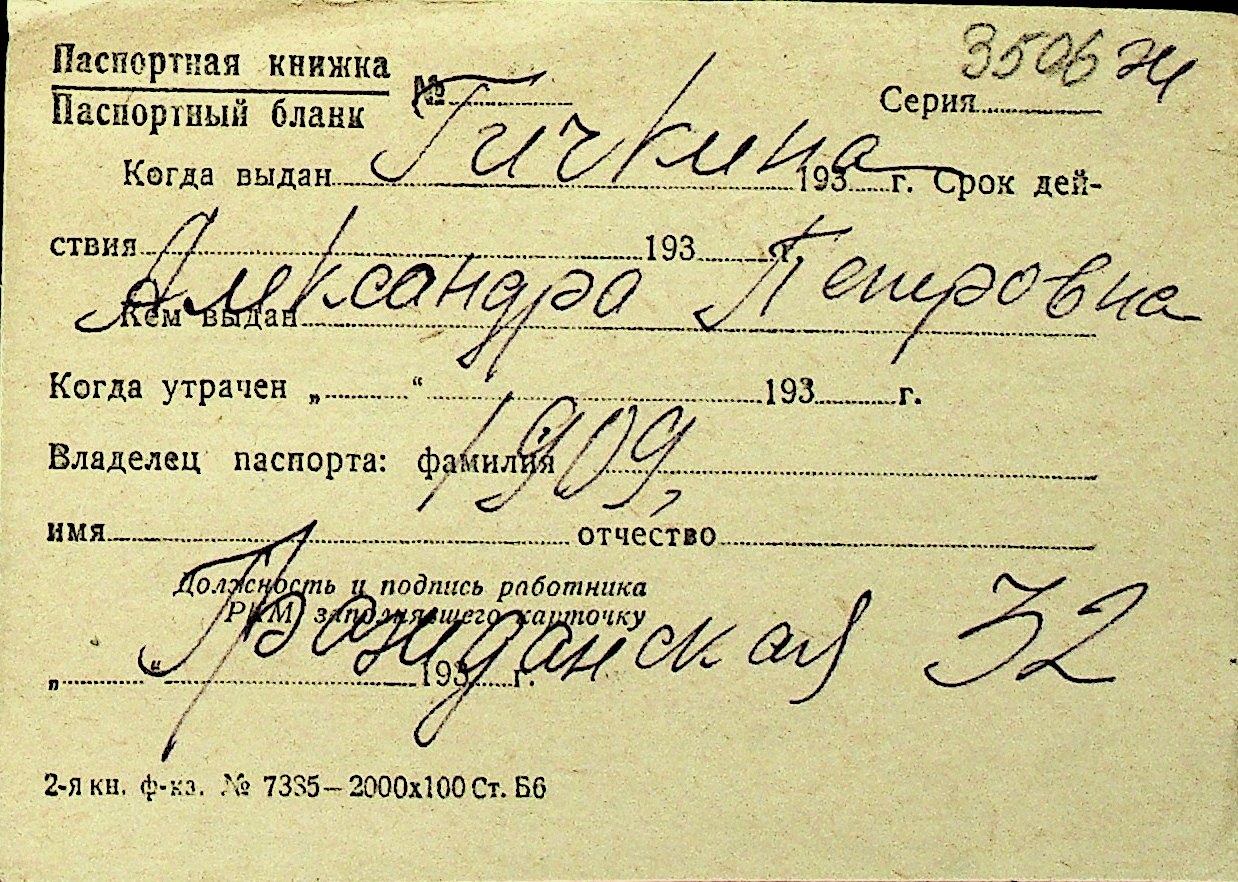 3506 ж
Паспортная книжка
Паспортный бланк
№ Серия
Гичкина
Когда выдан 193 г. Срок дей-
ствия 193 г.
Александра Петровна
Кем выдан
Когда утрачен „ “ 193 г.
1909,
Владелец паспорта: фамилия
имя отчество
Должность и подпись работника
РКМ, заполнявшего карточку
Гражданская 32
„ “ 193 г.
2-я кн. ф-ка. № 7385—2000х100 Ст. Б6